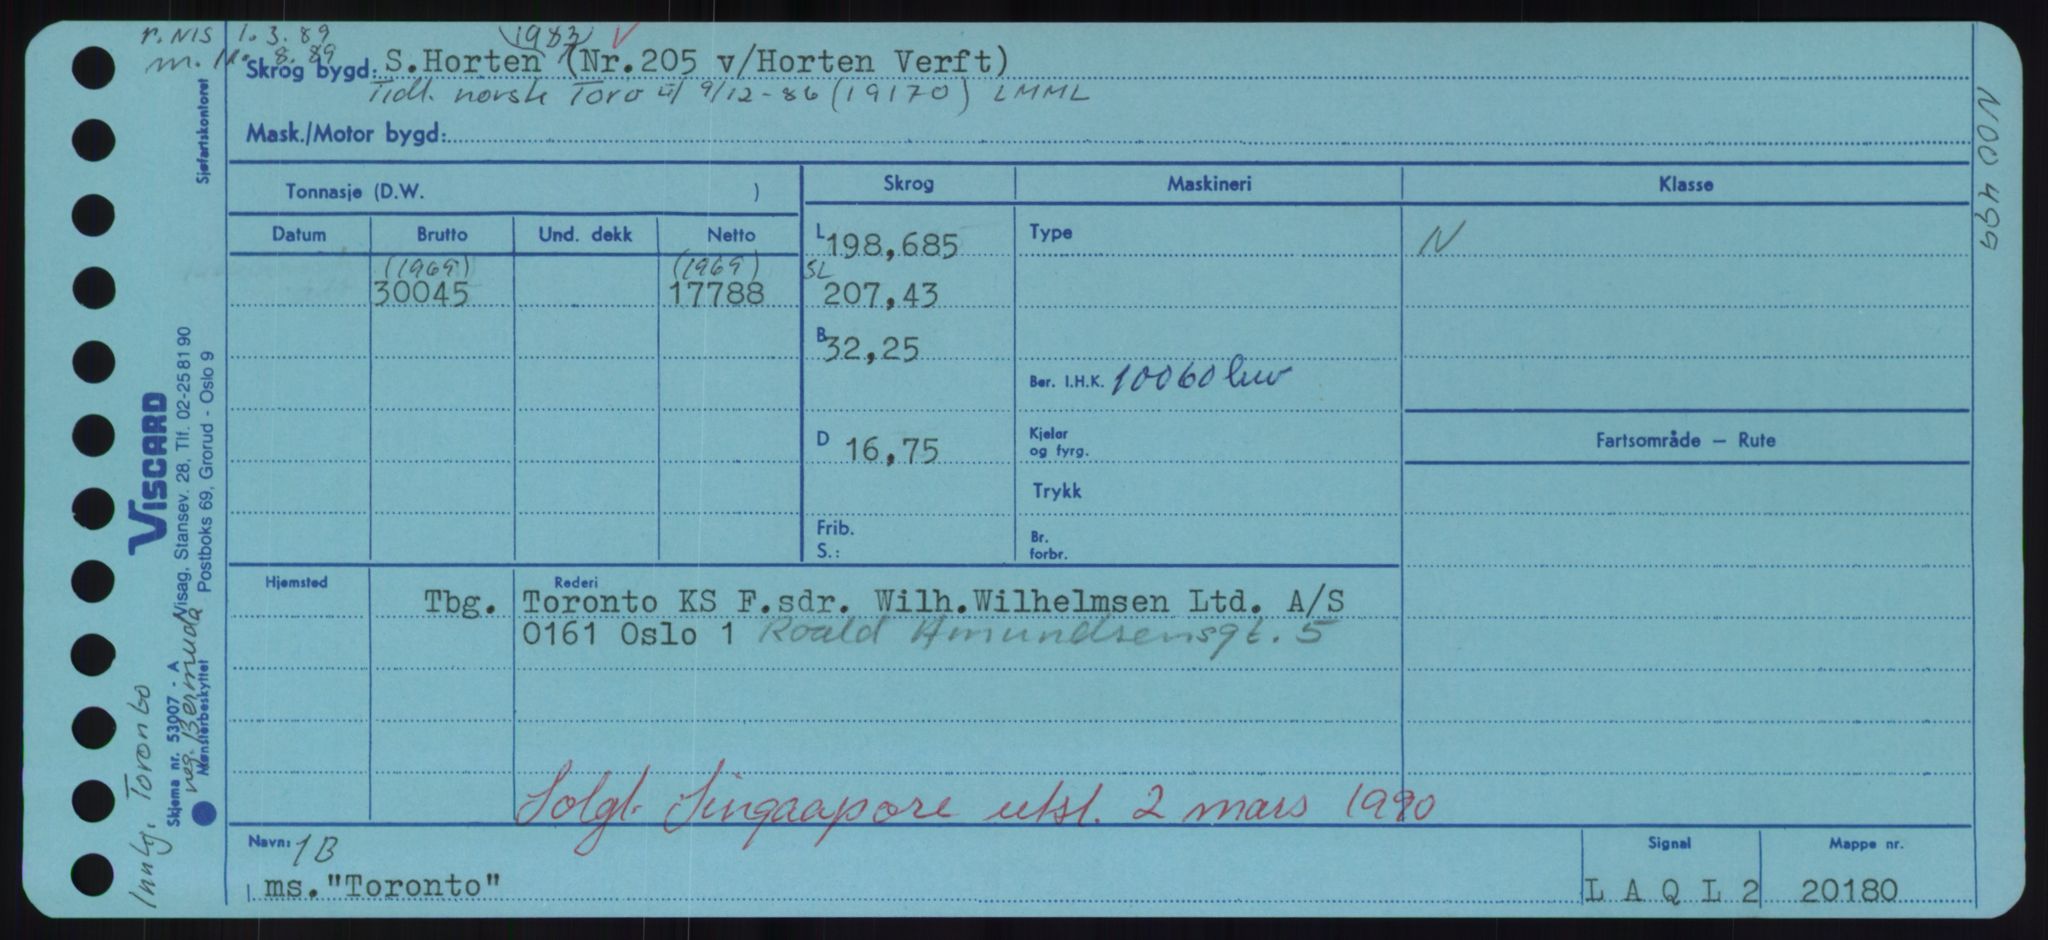 r. NIS 1.3.89
m. 8.89
1983 V
Skrog bygd: S.Horten (Nr.205 v/Horten Verft)
Tidl. norsk Toro 9/12-86 (19170) LMML
Mask./Motor bygd:
Tonnasje (D.W. )
Skrog Maskineri Klasse
Datum Brutto Und. dekk Netto
L 198,685 Type N
(1969) (1969) SL
30045 17788 207,43
B 32,25
Ber. I.H.K. 10060 kw
D 16,75 Kjeler
og fyrg.
Fartsområde — Rute
Trykk
Frib.
S.:
Br.
forbr.
Hjemsted Rederi
Tbg. Toronto KS F.sdr. Wilh.Wilhelmsen Ltd. A/S
0161 Oslo 1 Roald Amundsensgt. 5
Solgt Singaapore utsl. 2 mars 1990
Navn: 1B Signal Mappe nr.
ms."Toronto" L A Q L 2 20180
N00499
Sjøfartskontoret
VISCARD
Visag. Stansev. 28, Tlf. 02-258190
Postboks 69, Grorud - Oslo 9
Skjema nr. 53007 - A
Mønsterbeskyttet
Toronto
reg. Bermuda